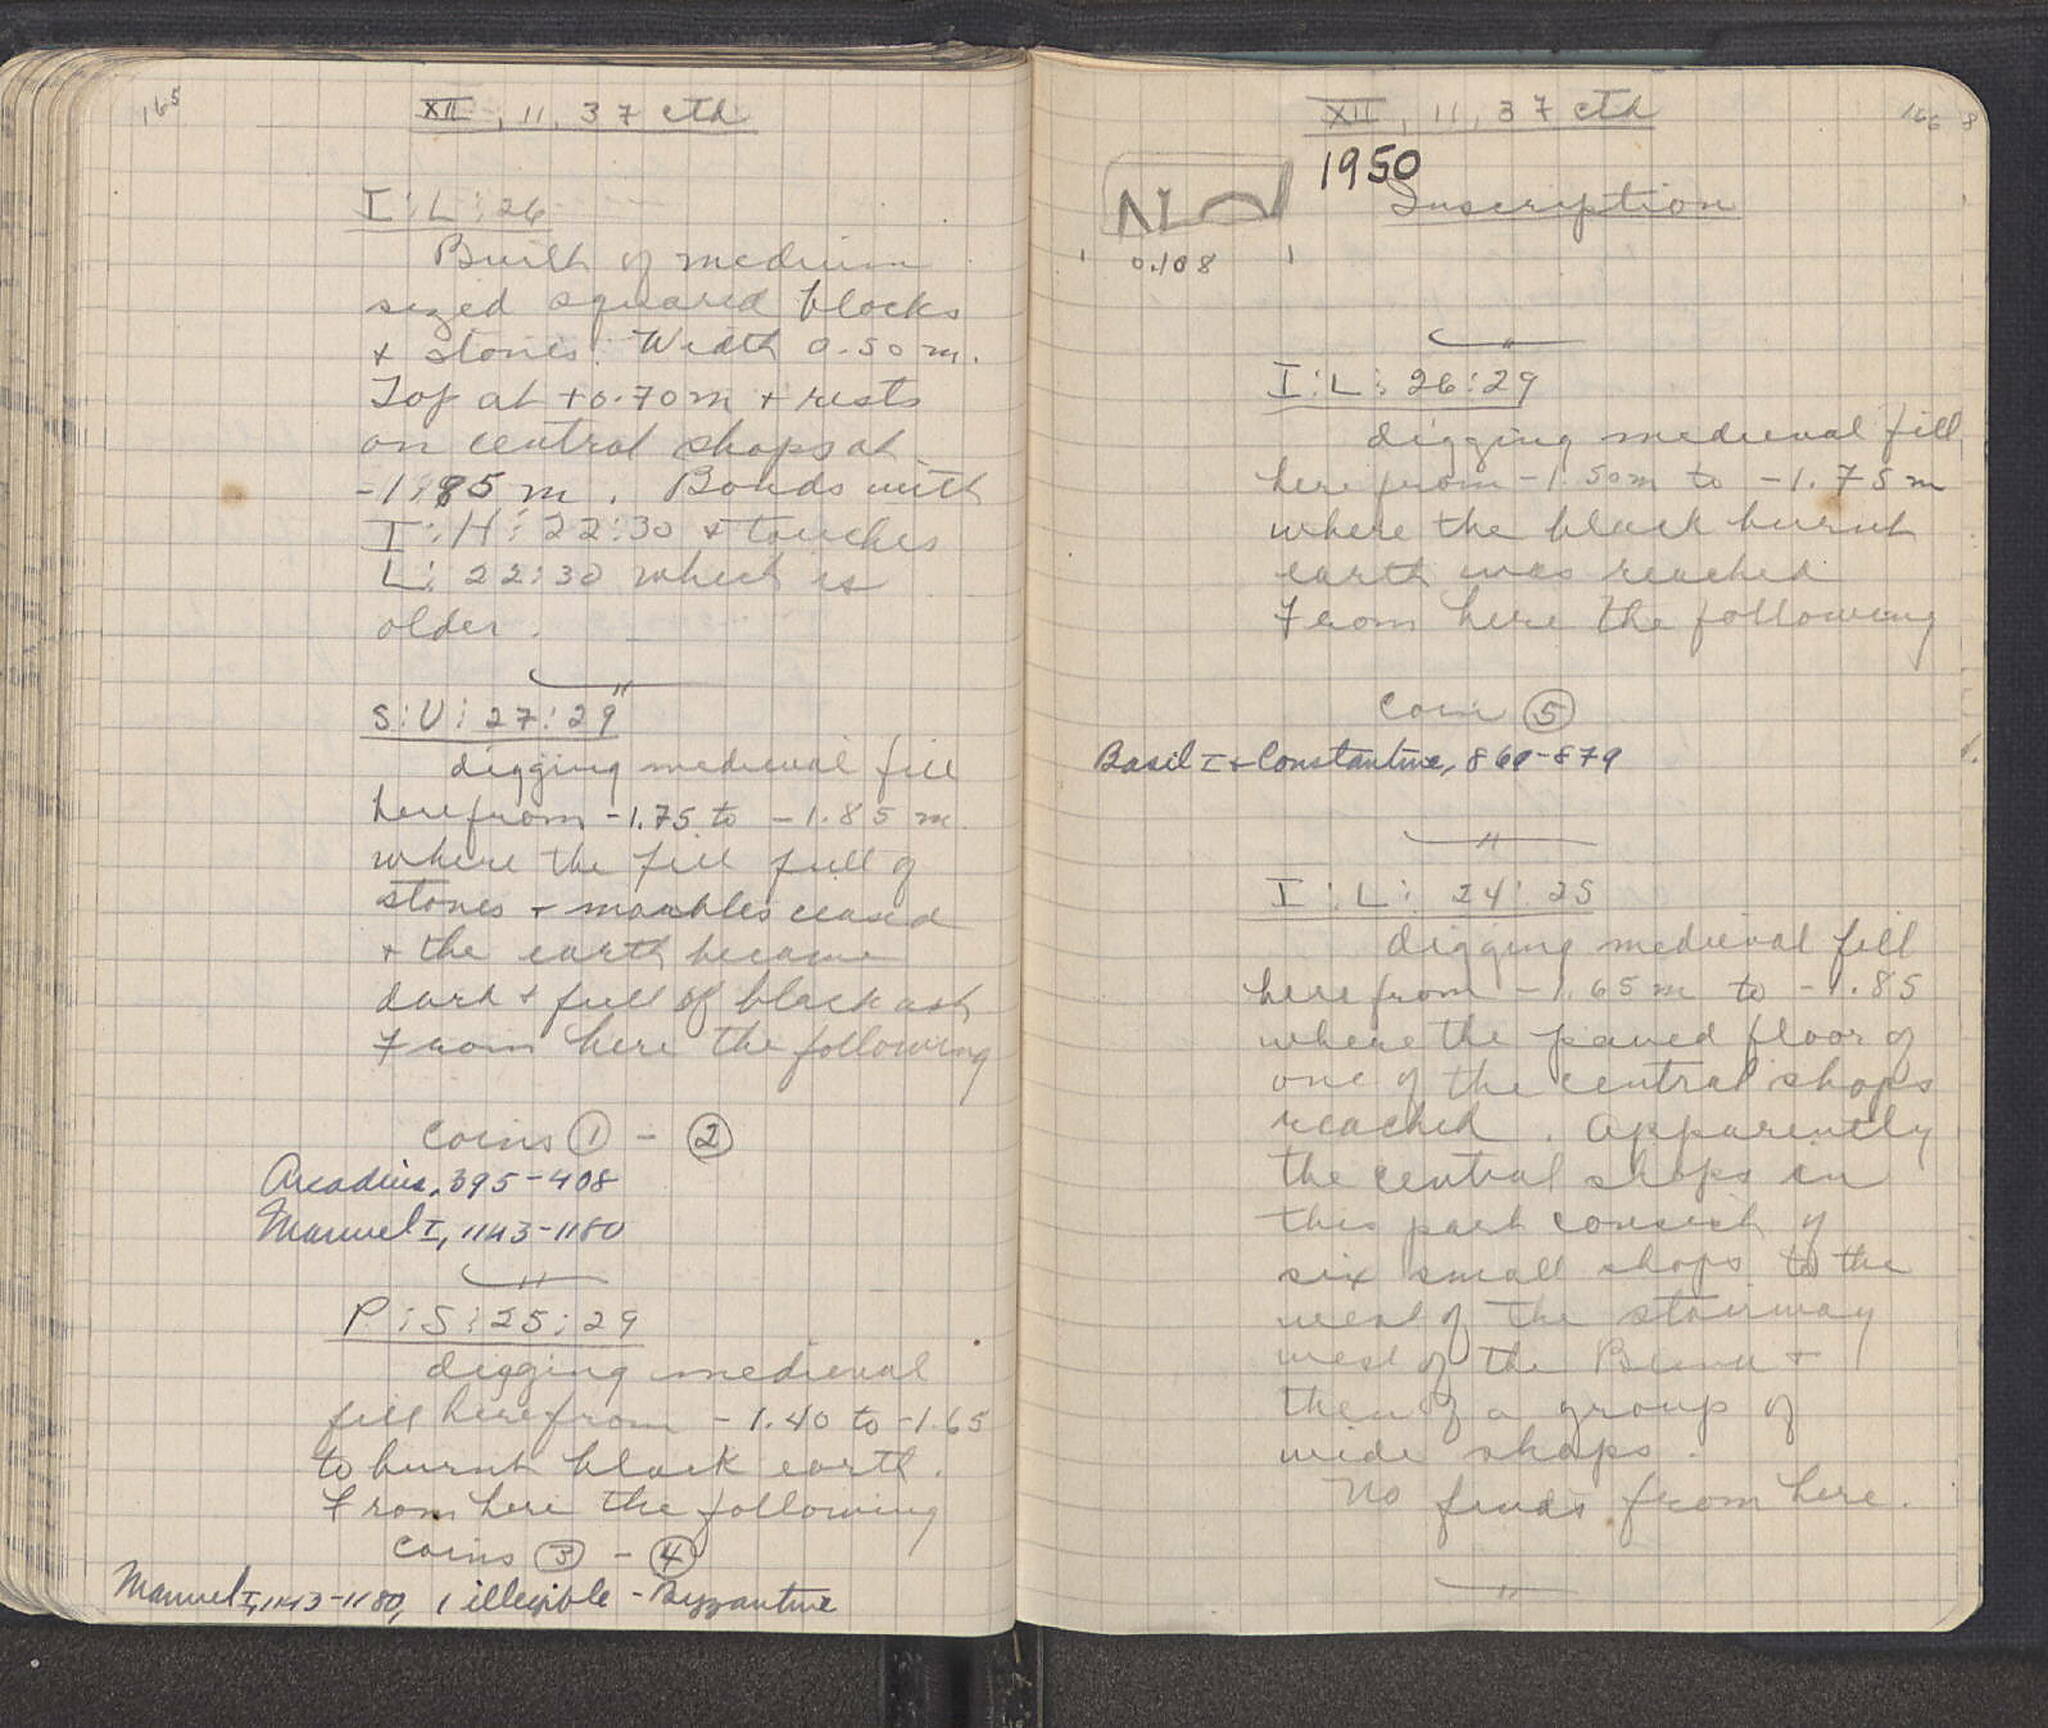 165
XII, 11, 37 cth
I:L:26
Built of medium
sized squared blocks
+ stones. Width 0.50 m.
Top at +0.70 m + rests
on central shops at
-1.85 m. Bonds with
I:H:22:30 + touches
L:22:30 which is
older.
S:U:27:29
digging medieval fill
here from -1.75 to -1.85 m.
where the fill full of
stones + marbles ceased
+ the earth became
dark + full of black ash
From here the following
coins ① - ②
Arcadius, 395-408
Manuel I, 1143-1180
P:S:25:29
digging medieval
fill here from -1.40 to -1.65
to burnt black earth.
From here the following
coins ③ - ④
Manuel I, 1143-1180, 1 illegible - Byzantine
XII, 11, 37 cth
166
1950
Inscription
0.108
I:L:26:29
digging medieval fill
here from -1.50m to -1.75 m
where the black burnt
earth was reached
From here the following
coin ⑤
Basil I + Constantine, 869-879
I:L:24:25
digging medieval fill
here from -1.65 m to -1.85
where the paved floor of
one of the central shops
reached. Apparently
the central shops in
this part consist of
six small shops to the
west of the stairway
west of the Bema +
then of a group of
wide shops.
No finds from here.